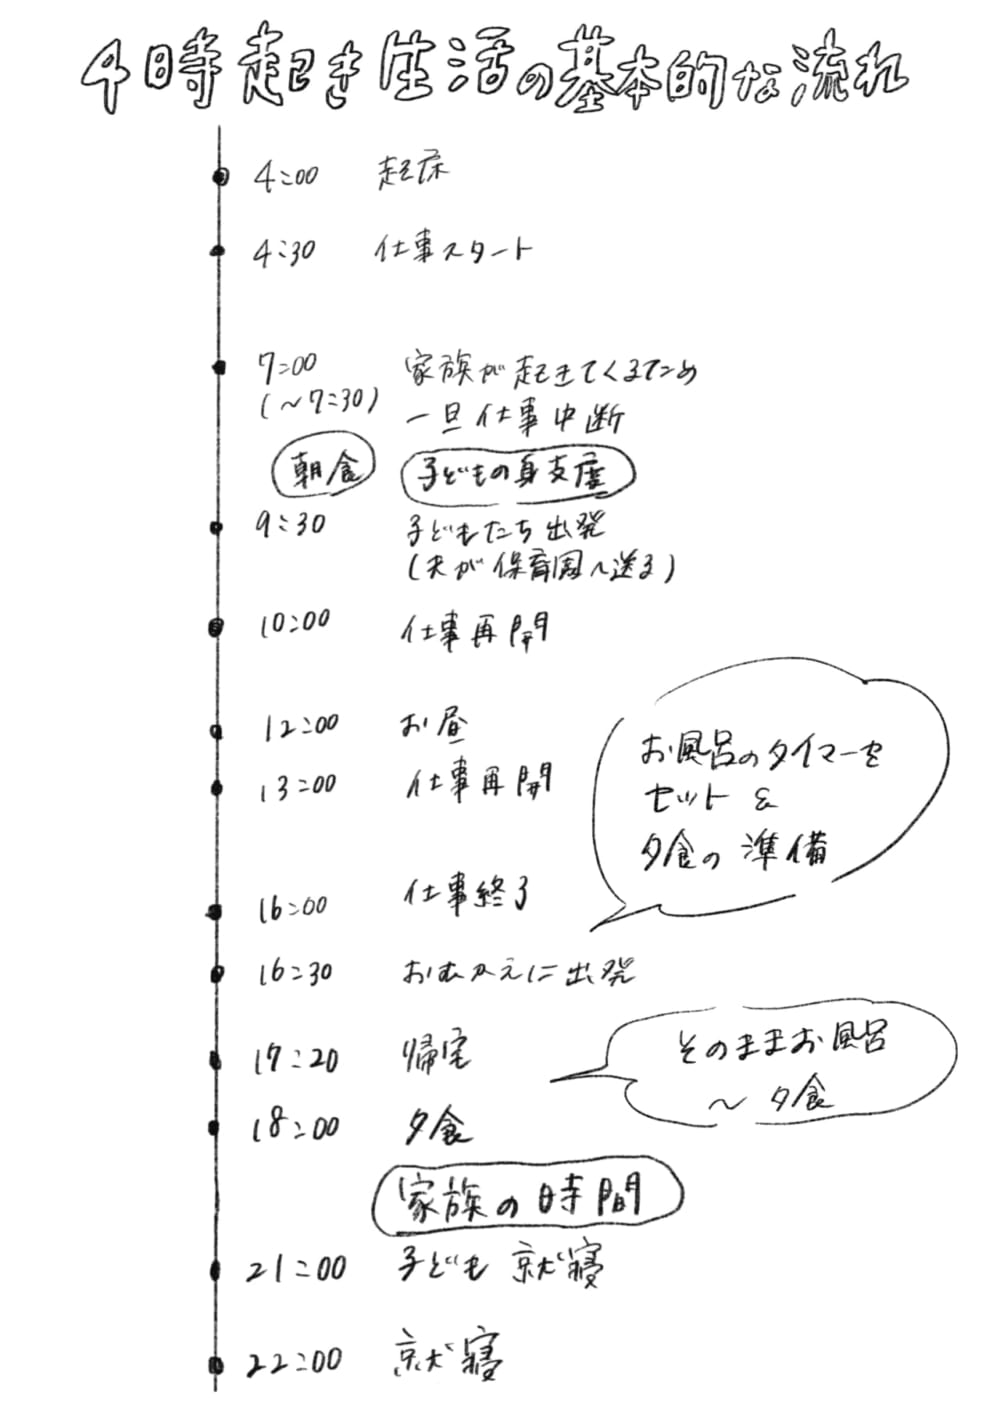 4時起き生活の基本的な流れ
4:00 起床
4:30 仕事スタート
7:00 家族が起きてくるため
(〜7:30) 一旦仕事中断
朝食 子どもの身支度
9:30 子どもたち出発
(夫が保育園へ送る)
10:00 仕事再開
12:00 お昼
13:00 仕事再開
お風呂のタイマーを
セット &
夕食の準備
16:00 仕事終了
16:30 おむかえに出発
17:20 帰宅
そのままお風呂
〜夕食
18:00 夕食
家族の時間
21:00 子ども就寝
22:00 就寝